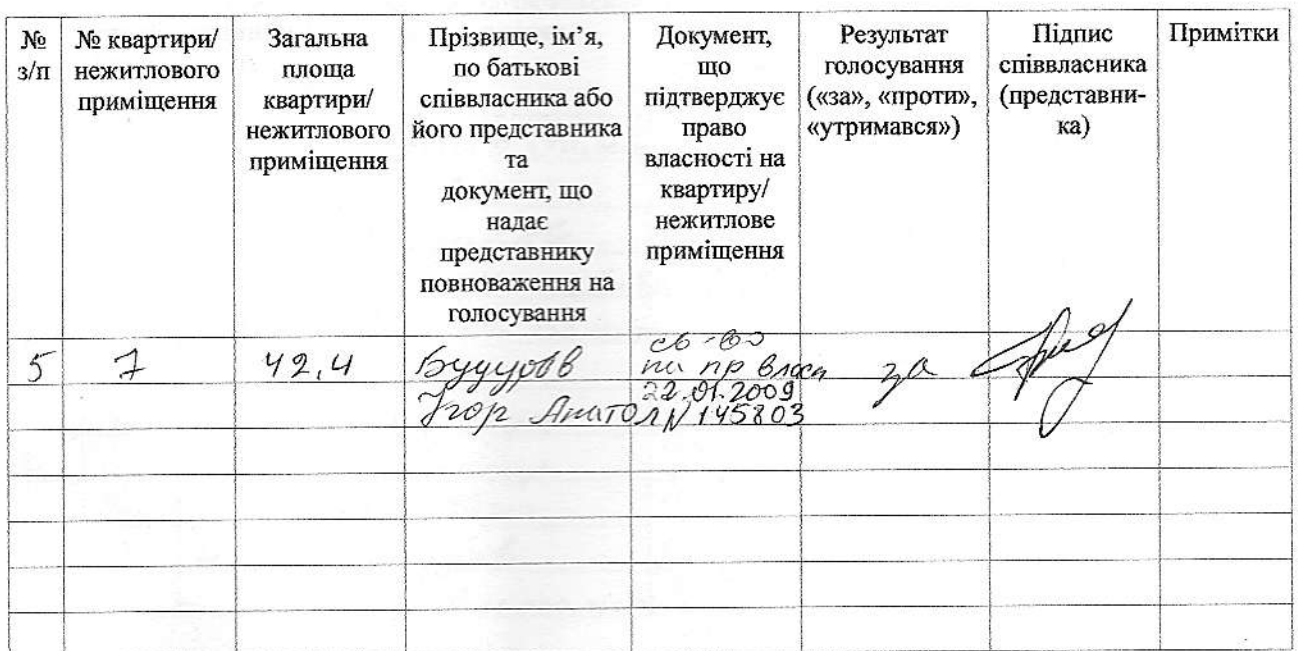 №
з/п
№ квартири/
нежитлового
приміщення
Загальна
площа
квартири/
нежитлового
приміщення
Прізвище, ім’я,
по батькові
співвласника або
його представника
та
документ, що
надає
представнику
повноваження на
голосування
Документ,
що
підтверджує
право
власності на
квартиру/
нежитлове
приміщення
Результат
голосування
(«за», «проти»,
«утримався»)
Підпис
співвласника
(представни-
ка)
Примітки
5
7
42,4
Ігор Анатол
св-во
на пр власн
22.01.2009
N 145803
за